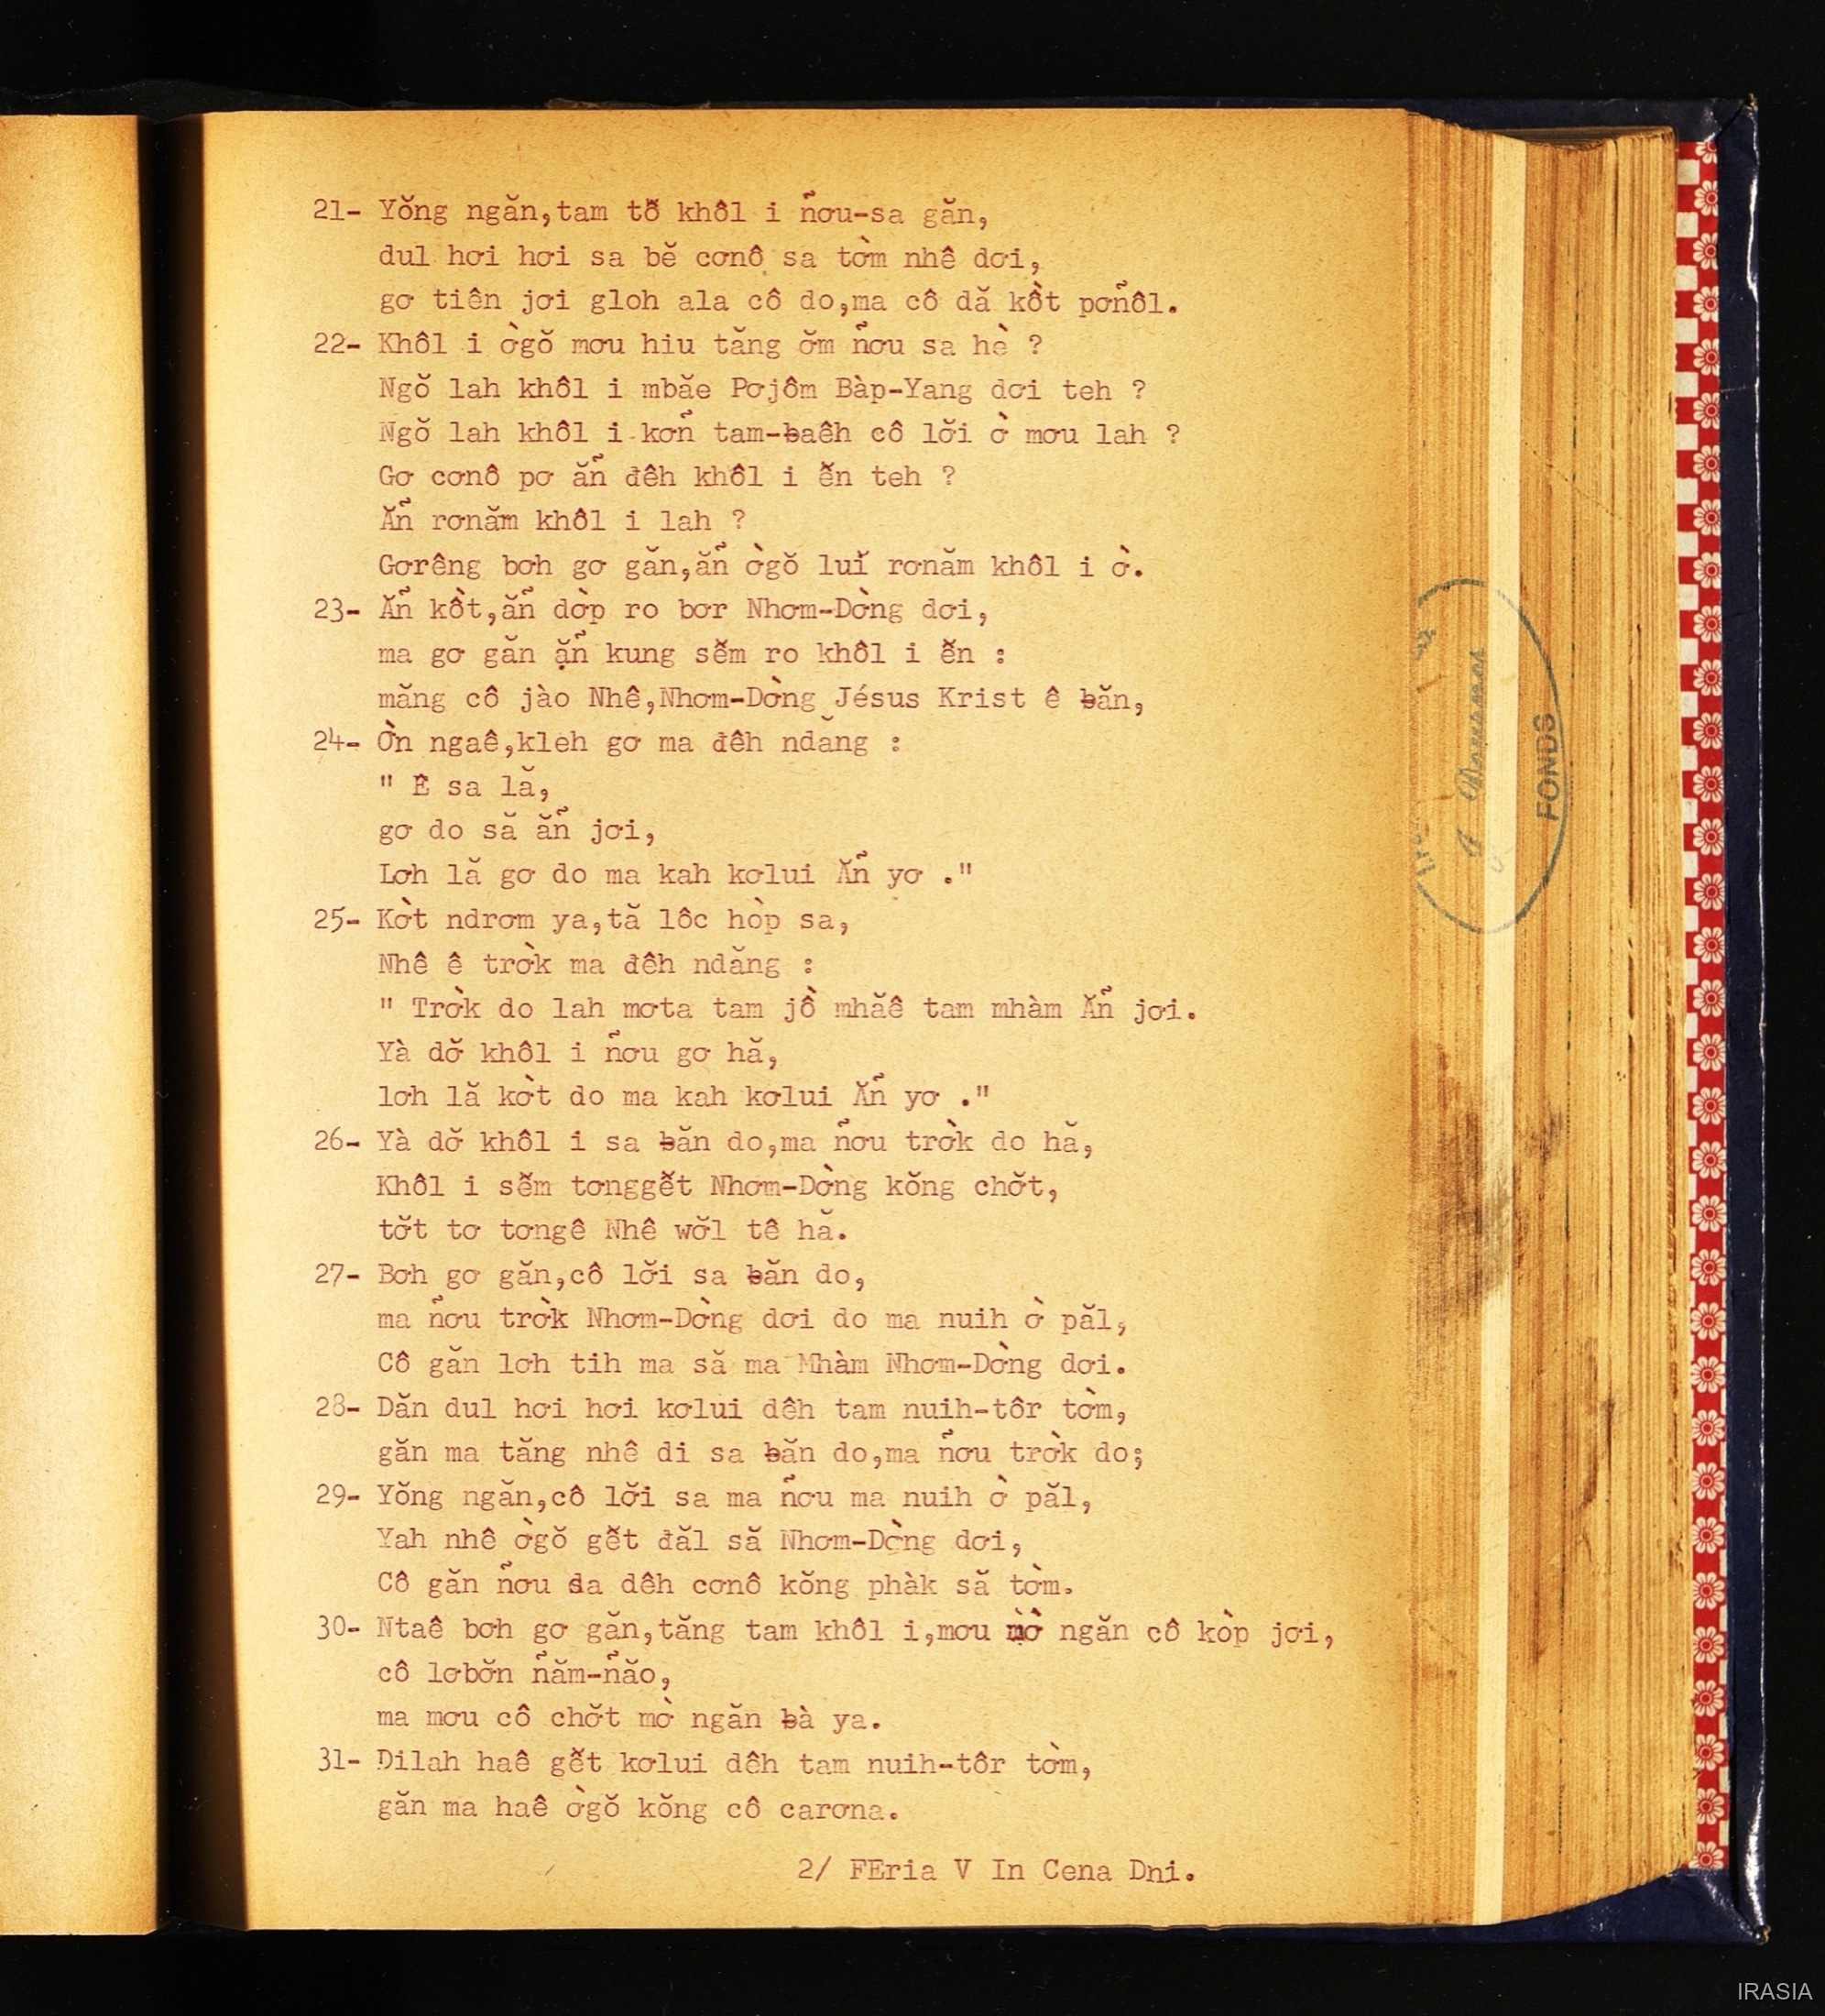 21- Yŏng ngăn,tam tơ̆ khôl i ñơu-sa găn,
dul hơi hơi sa bĕ cơnô sa tờm nhê dơi,
gơ tiên jơi gloh ala cô do,ma cô dă kồt pơñôl.
22- Khôl i ờgŏ mơu hiu tăng ơ̆m ñơu sa hè ?
Ngŏ lah khôl i mbăe Pơjôm Bàp-Yang dơi teh ?
Ngŏ lah khôl i kơñ tam-ƀaêh cô lơ̆i ờ mơu lah ?
Gơ cơnô pơ ăñ đêh khôl i ê̆n teh ?
Ăñ rơnăm khôl i lah ?
Gơrêng bơh gơ găn,ăñ ờgŏ luĭ rơnăm khôl i ờ.
23- Ăñ kồt,ăñ dờp ro bơr Nhơm-Dờng dơi,
ma gơ găn ặñ kung sê̆m ro khôl i ê̆n :
măng cô jào Nhê,Nhơm-Dờng Jésus Krist ê ƀăn,
24- Ờn ngaê,kleh gơ ma đêh ndăng :
" Ê sa lă,
gơ do să ăñ jơi,
Lơh lă gơ do ma kah kơlui Ăñ yơ ."
25- Kờt ndrơm ya,tă lôc hòp sa,
Nhê ê trờk ma đêh ndăng :
" Trờk do lah mơta tam jồ mhăê tam mhàm Ăñ jơi.
Yà dơ̆ khôl i ñơu gơ hă,
lơh lă kờt do ma kah kơlui Ăñ yơ ."
26- Yà dơ̆ khôl i sa ƀăn do,ma ñơu trờk do hă,
Khôl i sê̆m tơnggê̆t Nhơm-Dờng kŏng chơ̆t,
tơ̆t tơ tơngê Nhê wơ̆l tê hă.
27- Bơh gơ găn,cô lơ̆i sa ƀăn do,
ma ñơu trờk Nhơm-Dờng dơi do ma nuih ờ păl,
Cô găn lơh tih ma să ma Mhàm Nhơm-Dờng dơi.
28- Dăn dul hơi hơi kơlui dêh tam nuih-tôr tờm,
găn ma tăng nhê di sa ƀăn do,ma ñơu trờk do;
29- Yŏng ngăn,cô lơ̆i sa ma ñơu ma nuih ờ păl,
Yah nhê ờgŏ gê̆t đăl să Nhơm-Dờng dơi,
Cô găn ñơu sa dêh cơnô kŏng phàk să tờm.
30- Ntaê bơh gơ găn,tăng tam khôl i,mơu mờ ngăn cô kòp jơi,
cô lơbơ̆n ñăm-ñăo,
ma mơu cô chơ̆t mờ ngăn ƀà ya.
31- Dilah haê gê̆t kơlui dêh tam nuih-tôr tờm,
găn ma haê ờgŏ kŏng cô carơna.
2/ FEria V In Cena Dni.
FONDS
IRASIA